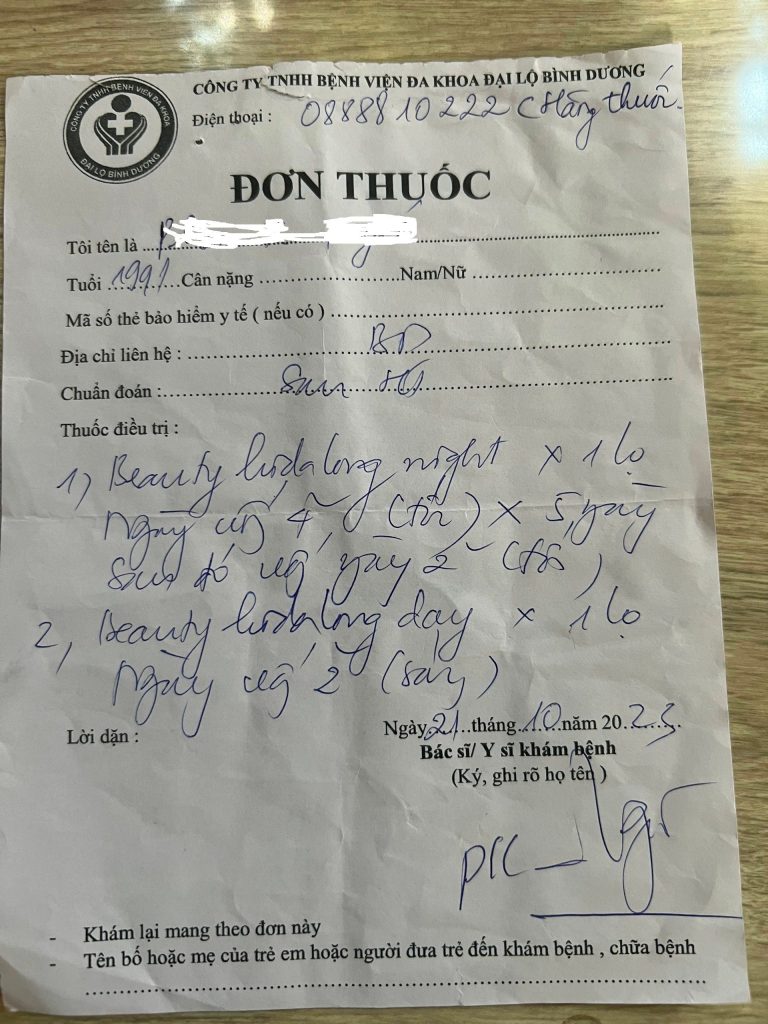 CÔNG TY TNHH BỆNH VIỆN ĐA KHOA
ĐẠI LỘ BÌNH DƯƠNG
CÔNG TY TNHH BỆNH VIỆN ĐA KHOA ĐẠI LỘ BÌNH DƯƠNG
Điện thoại : 0888810222 (Hằng thuốc
ĐƠN THUỐC
Tôi tên là
Tuổi 1991 Cân nặng Nam/Nữ
Mã số thẻ bảo hiểm y tế ( nếu có )
Địa chỉ liên hệ : BD
Chuẩn đoán :
Thuốc điều trị :
1) Beauty night x 1 lọ
Ngày uống 4 (tối) x 5 ngày
Sau đó uống ngày 2 (tối)
2, Beauty day x 1 lọ
Ngày uống 2 (sáng)
Lời dặn :
Ngày 21 tháng 10 năm 2023
Bác sĩ/ Y sĩ khám bệnh
(Ký, ghi rõ họ tên )
- Khám lại mang theo đơn này
- Tên bố hoặc mẹ của trẻ em hoặc người đưa trẻ đến khám bệnh , chữa bệnh